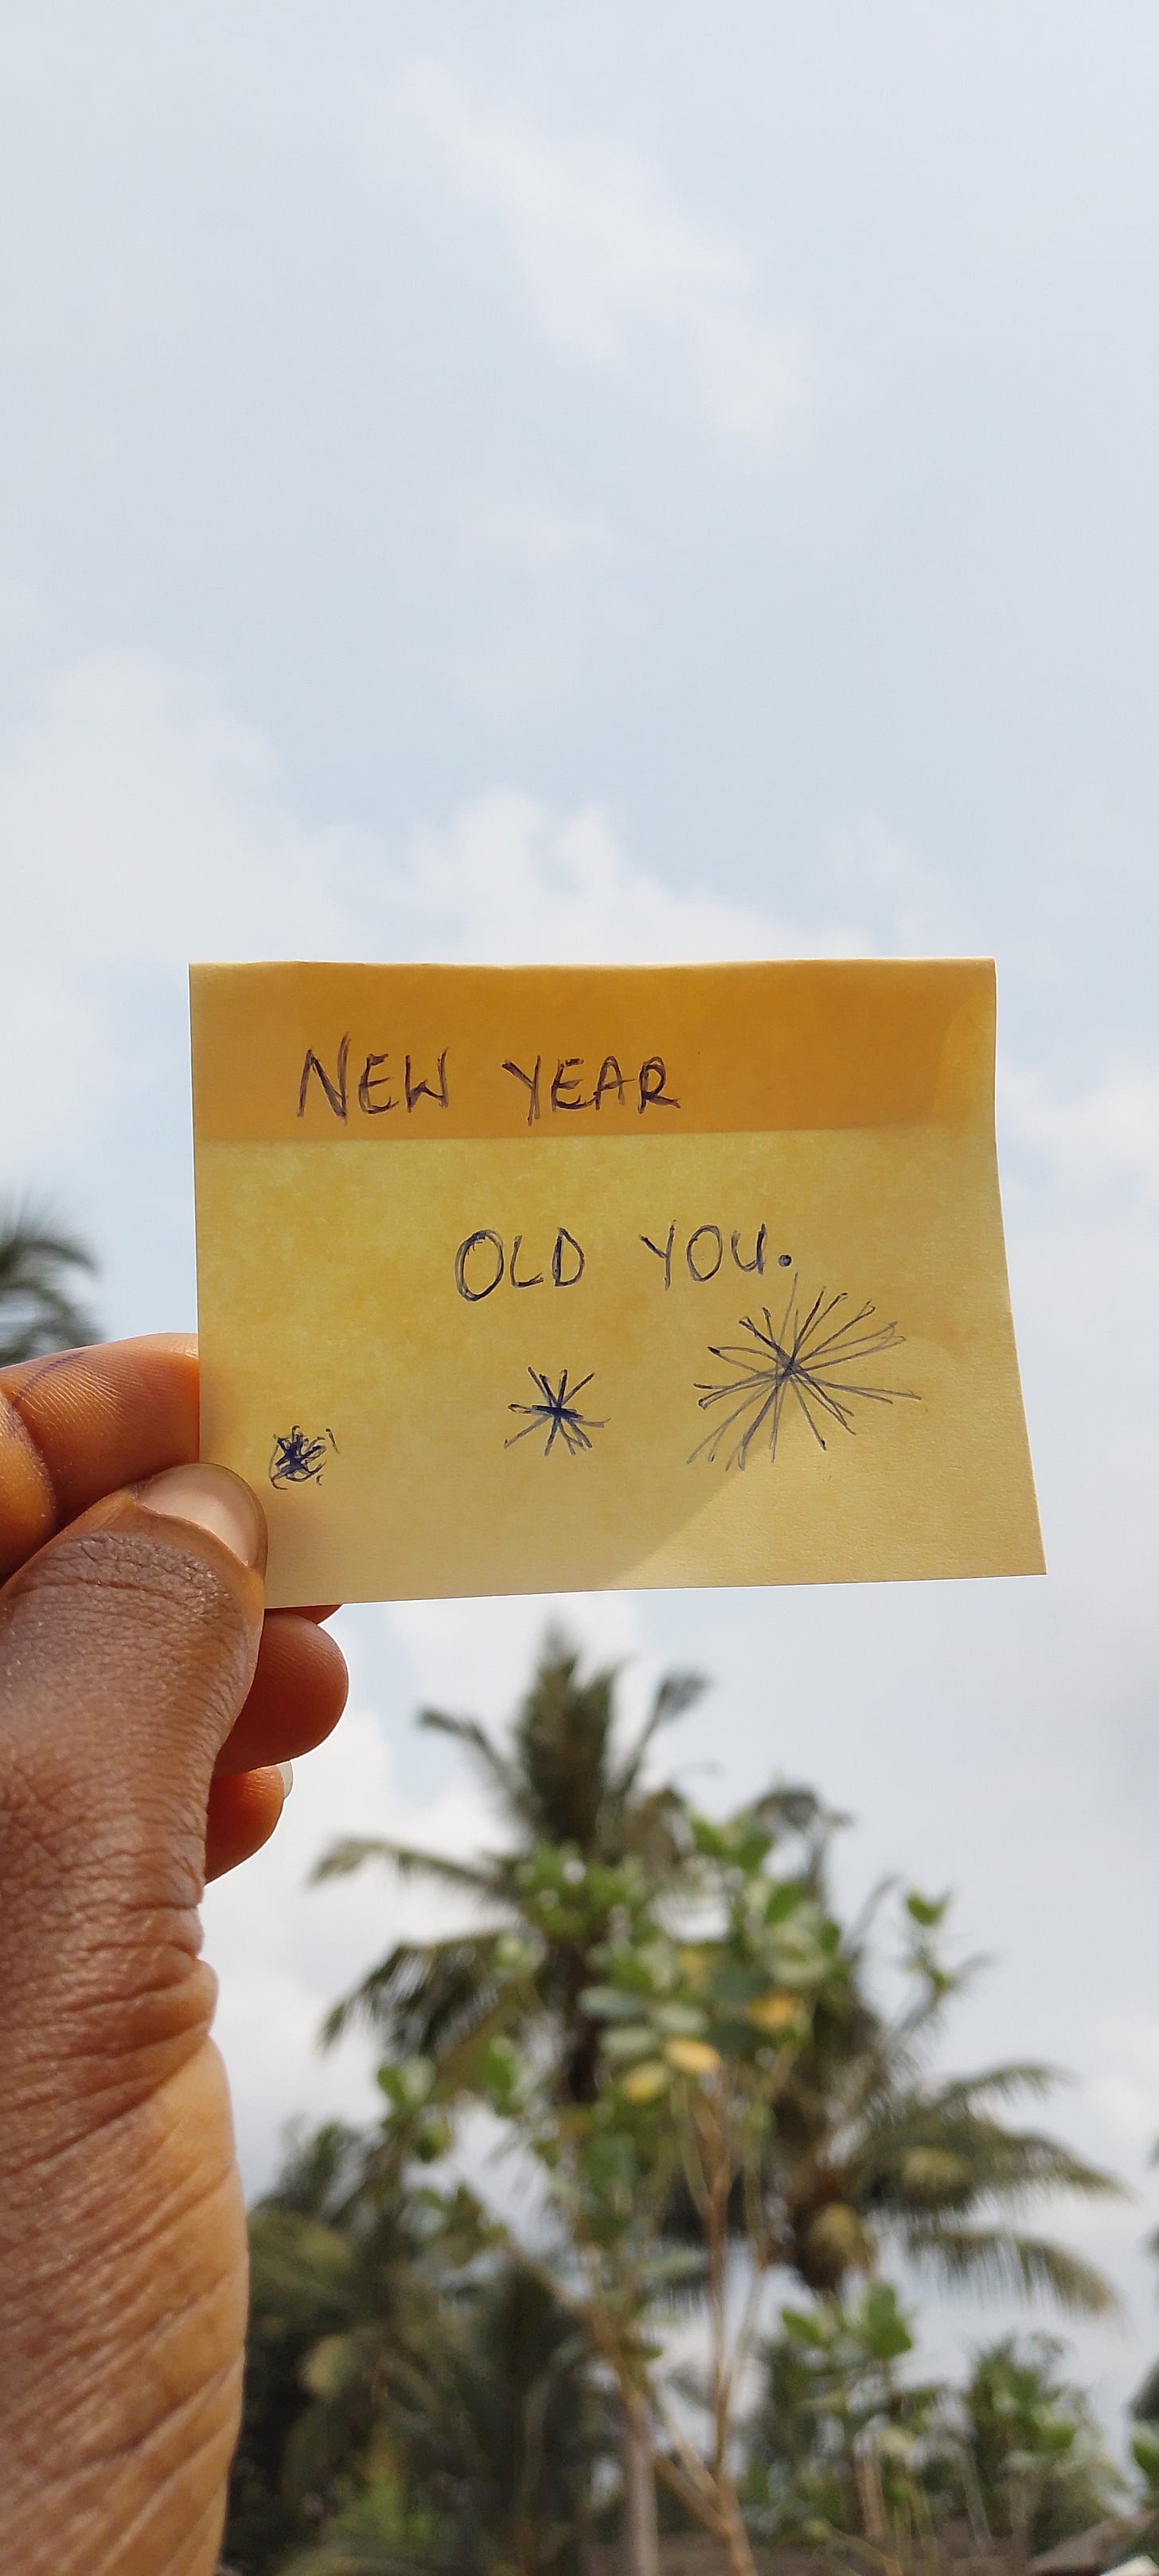 NEW YEAR
OLD YOU.